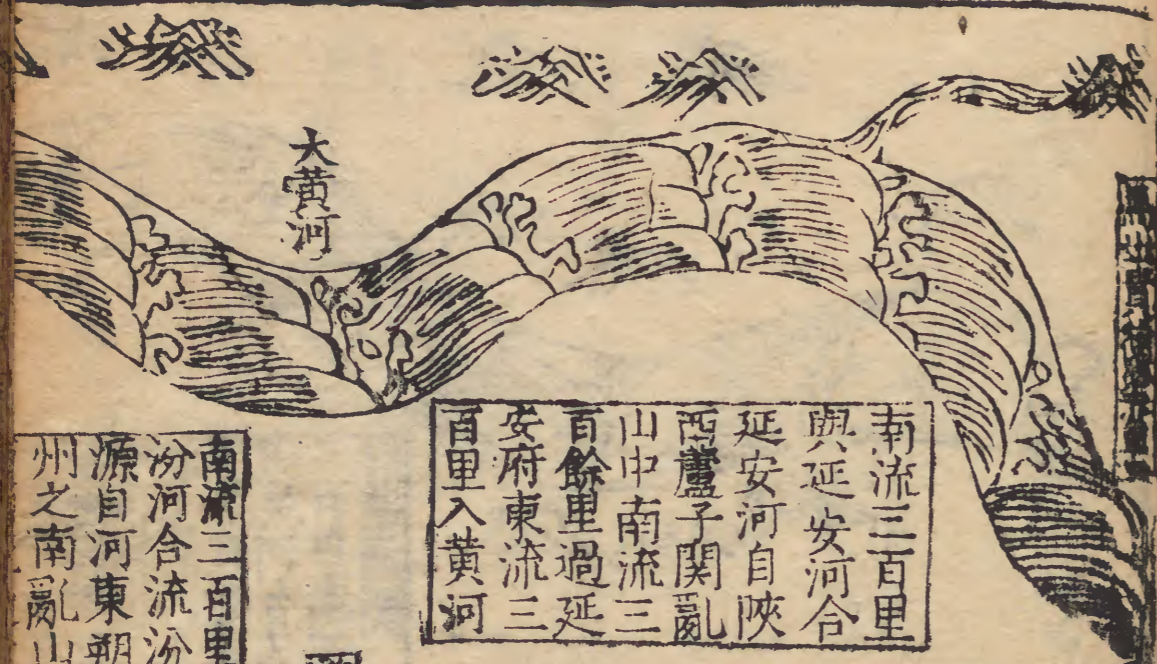 大黄河
南流三百里
與延安河合
延安河自陜
西蘆子関亂
山中南流三
百餘里過延
安府東流三
百里入黄河
南流三百里
汾河合流汾
源自河東朔
州之南亂山